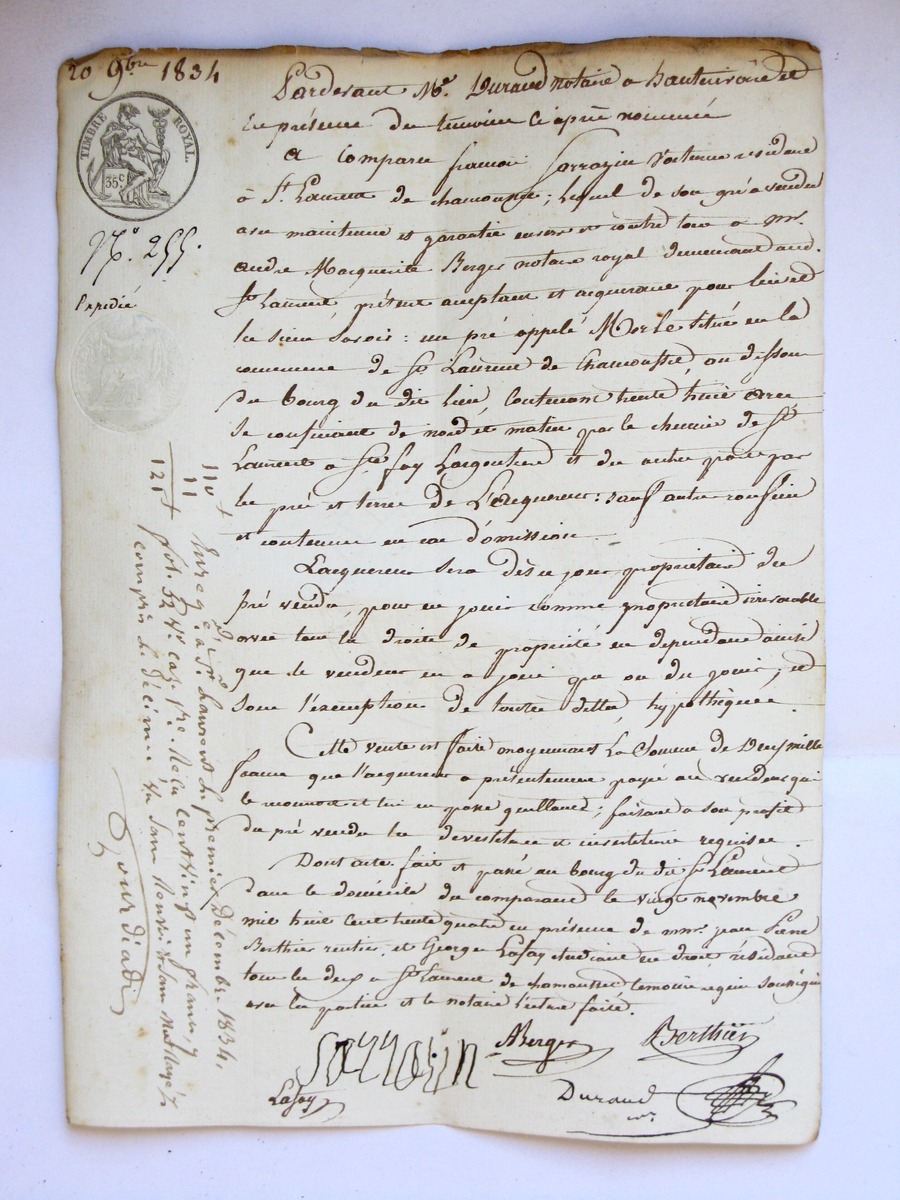 20 9bre 1834
TIMBRE ROYAL.
35c
No. 255.
Expédié
Pardevant Me. Durand notaire a hauterivoire et
En présence des témoins Ci après nommés
a Comparu françois Sorrozin voiturier residant
à St. Laurent de chamousset; lequel de son gré a vendu
avec maintenue et garantie envers et contre tous a mr.
andré Marguerite Berger notaire royal demeurant aud.
St. Laurent, présent acceptant et acquerant pour lui et
les siens Savoir: un pré appelé Morle situé en la
commune de St. Laurent de Chamousset, au dessous
du bourg du dit lieu, Contenant trente huit ares
Se confinant de nord et matin par le chemin de St
Laurent a Ste foy Largentiere et des autres parts par
les pré et terre de L'acquereur: sauf autres confins
et contenue en cas d'omission.
L'acquereur sera dès ce jour propriétaire du
pré vendu, pour en jouir comme propriétaire irrevocable
avec tous les droits de propriété en dependans ainsi
que le vendeur en a joui ou du jouir; et
sous l'exemption de toutes dettes, hypothèques.
Cette vente est faite moyennant La Somme de Deux mille
francs que l'acquereur a présentement payée au vendeur qui
le reconnoit et lui en passe quittance; faisant a son profit
du pré vendu les devestiture et investiture requises.
Dont acte. fait et passé au bourg du dit St. Laurent
dans le domicile du comparant le vingt novembre
mil huit Cent trente quatre en présence de mrs. jean Pierre
Berthier rentier, et Georges Lafay étudiant en droit, résidants
tous les deux a St. Laurent de chamousset temoins requis soussignés
avec les parties et le notaire lecture faite.
Sorrozin
ABerger
Berthier
Lafay
Durand
nre
110 +
11
121 +
Enregé. à St. Laurent le premier Décembre 1834,
fol. 52 Vo. cas. 1re. Reçu Cent vingt un francs,
compris le décime
Gourdiat